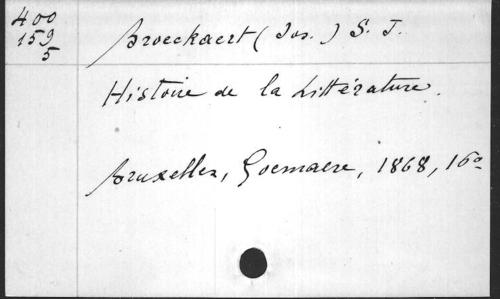 400
159
5
Broeckaert (Jos.) S. J.
Histoire de la Littérature.
Bruxelles, Goemaere, 1868, 16o